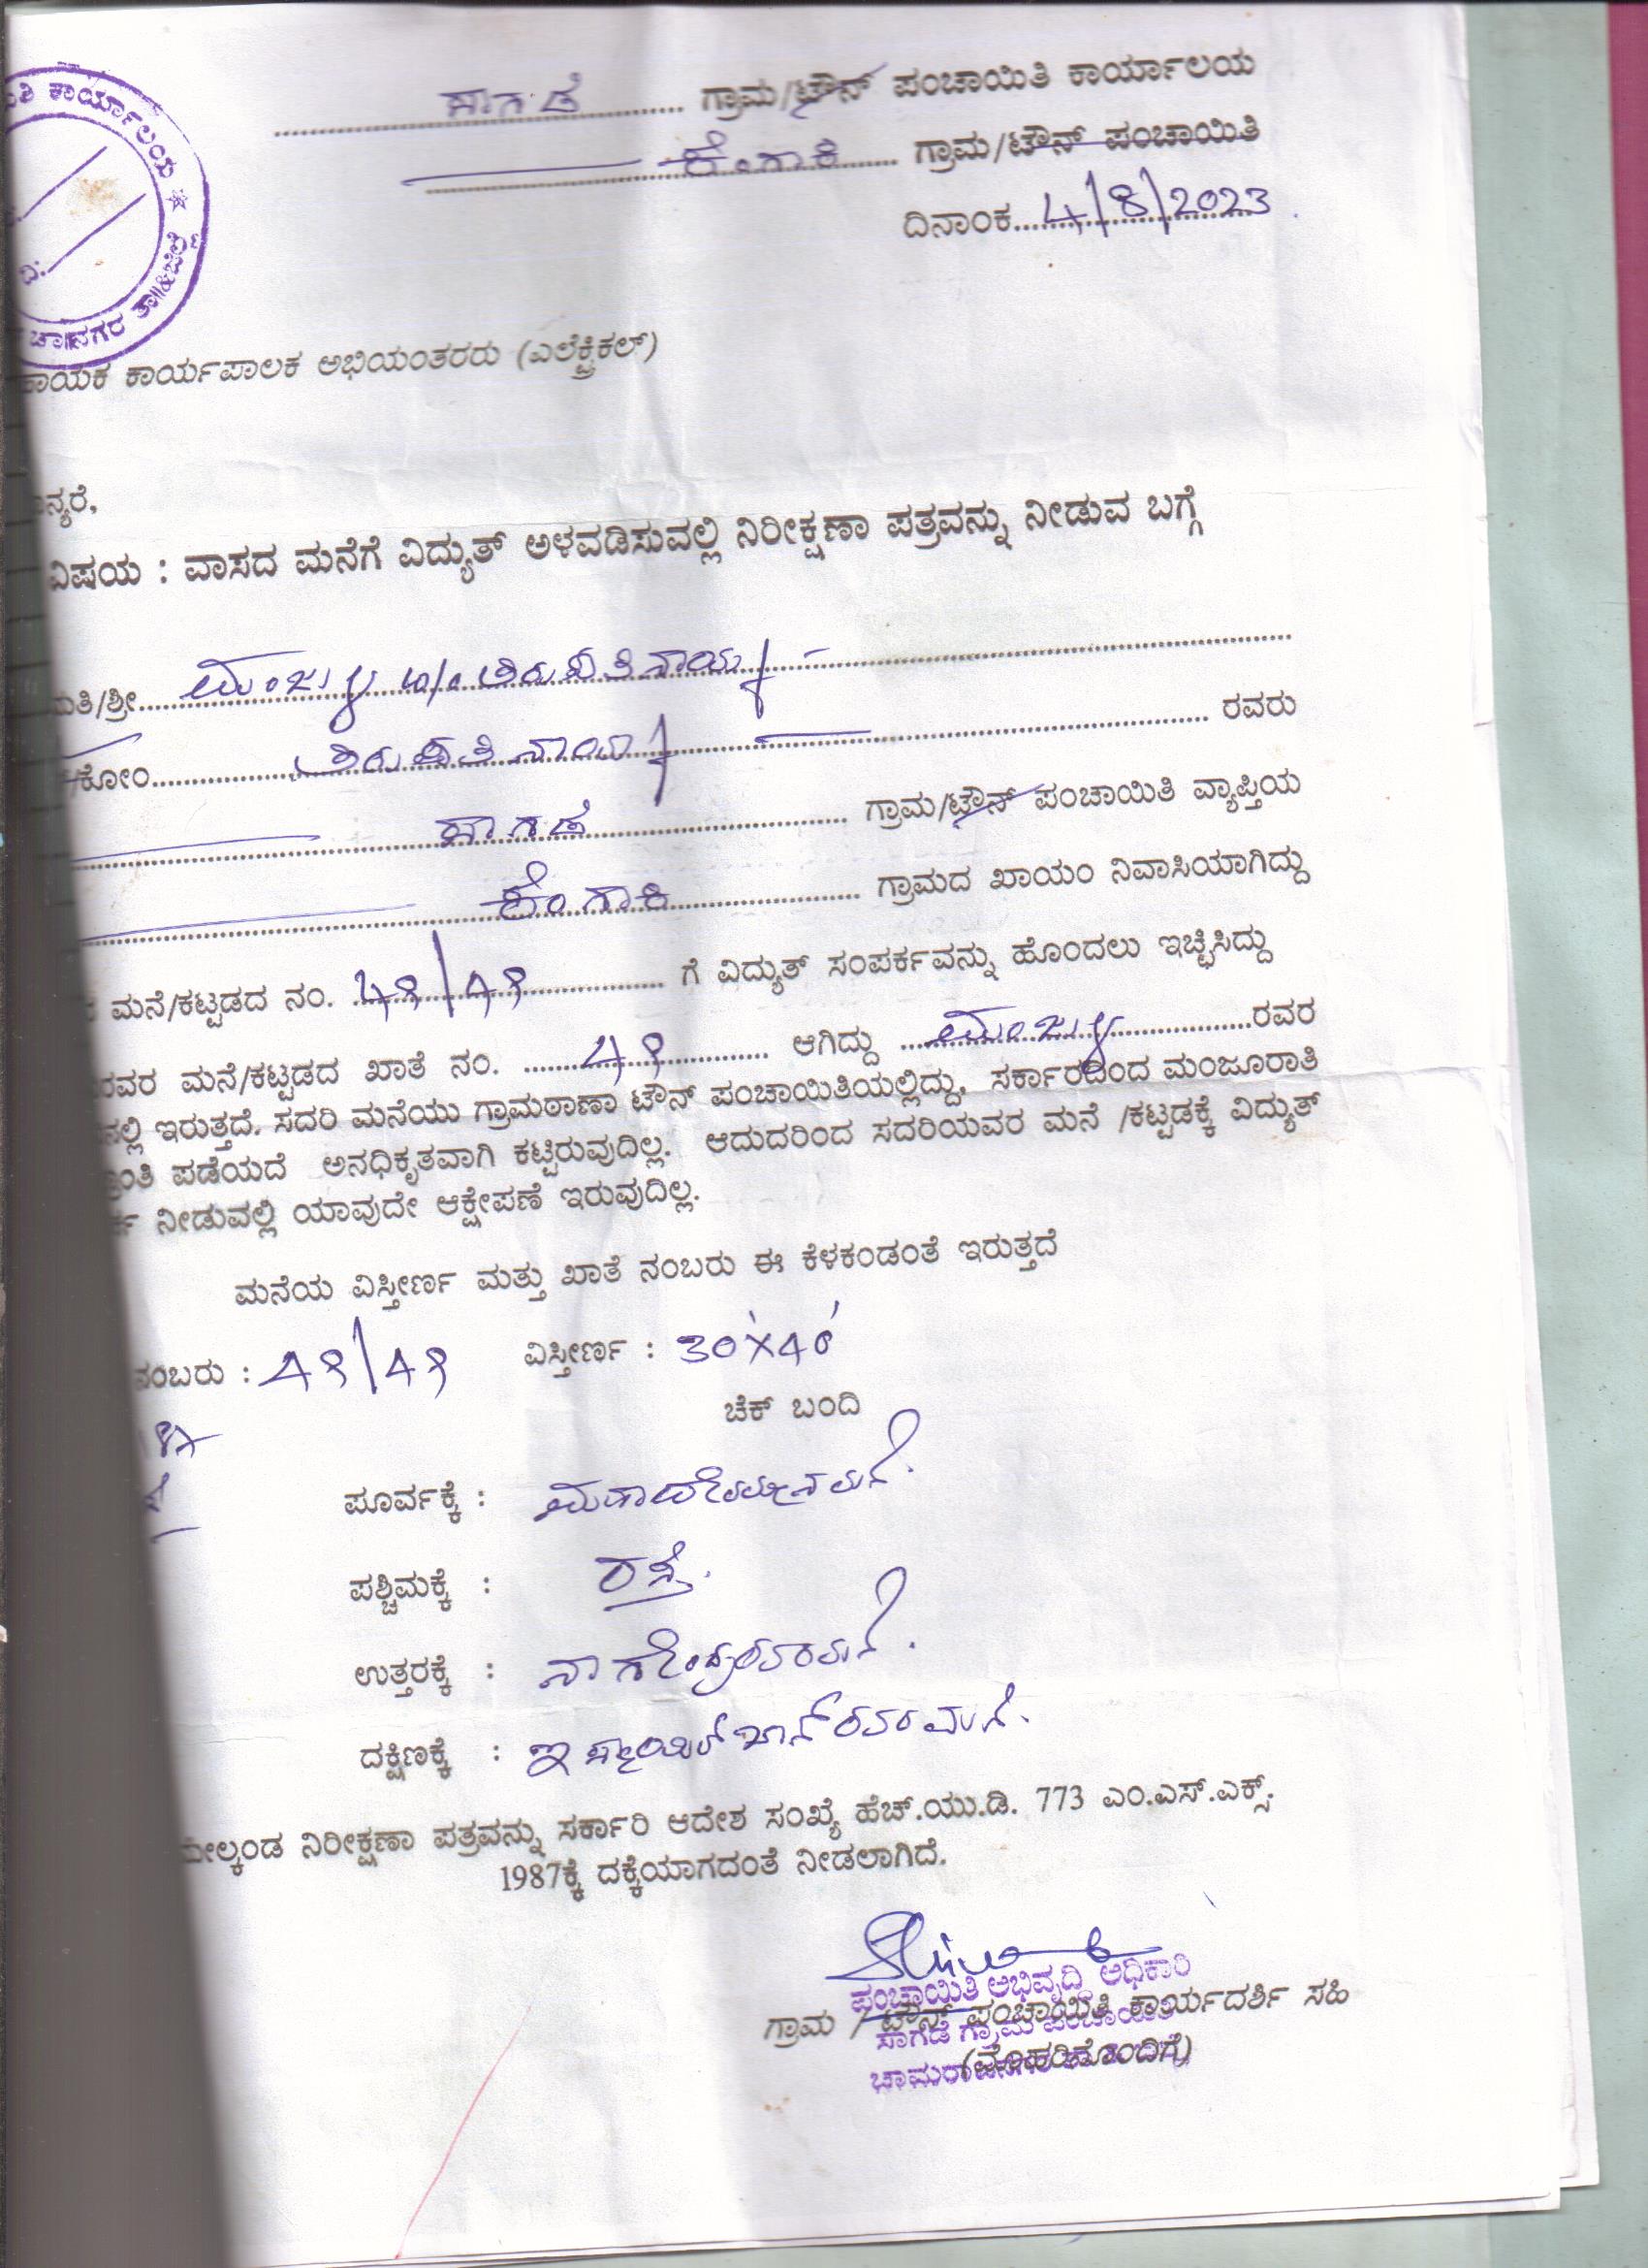 ಸಾಗಡೆ ಗ್ರಾಮ/ಟೌನ್ ಪಂಚಾಯಿತಿ ಕಾರ್ಯಾಲಯ
ಗ್ರಾಮ/ಟೌನ್ ಪಂಚಾಯಿತಿ
ದಿನಾಂಕ 4/8/2023
ತಿ ಕಾರ್ಯಾಲಯ
ದಿ:
ಚಾ||ನಗರ ತಾ||&ಜಿಲ್ಲೆ
ಹಾಯಕ ಕಾರ್ಯಪಾಲಕ ಅಭಿಯಂತರರು (ಎಲೆಕ್ಟ್ರಿಕಲ್)
ನ್ಯರೆ,
ವಿಷಯ : ವಾಸದ ಮನೆಗೆ ವಿದ್ಯುತ್ ಅಳವಡಿಸುವಲ್ಲಿ ನಿರೀಕ್ಷಣಾ ಪತ್ರವನ್ನು ನೀಡುವ ಬಗ್ಗೆ
ಮತಿ/ಶ್ರೀ ಮಂಜುಳ
/ಕೋಂ ರವರು
ಸಾಗಡೆ ಗ್ರಾಮ/ಟೌನ್ ಪಂಚಾಯಿತಿ ವ್ಯಾಪ್ತಿಯ
ಗ್ರಾಮದ ಖಾಯಂ ನಿವಾಸಿಯಾಗಿದ್ದು
ಮನೆ/ಕಟ್ಟಡದ ನಂ. 49/49 ಗೆ ವಿದ್ಯುತ್ ಸಂಪರ್ಕವನ್ನು ಹೊಂದಲು ಇಚ್ಛಿಸಿದ್ದು
ರವರ ಮನೆ/ಕಟ್ಟಡದ ಖಾತೆ ನಂ. 49 ಆಗಿದ್ದು ಮಂಜುಳ ರವರ
ನಲ್ಲಿ ಇರುತ್ತದೆ. ಸದರಿ ಮನೆಯು ಗ್ರಾಮಠಾಣಾ ಟೌನ್ ಪಂಚಾಯಿತಿಯಲ್ಲಿದ್ದು, ಸರ್ಕಾರದಿಂದ ಮಂಜೂರಾತಿ
ಂತಿ ಪಡೆಯದೆ ಅನಧಿಕೃತವಾಗಿ ಕಟ್ಟಿರುವುದಿಲ್ಲ. ಆದುದರಿಂದ ಸದರಿಯವರ ಮನೆ /ಕಟ್ಟಡಕ್ಕೆ ವಿದ್ಯುತ್
ರ್ಕ ನೀಡುವಲ್ಲಿ ಯಾವುದೇ ಆಕ್ಷೇಪಣೆ ಇರುವುದಿಲ್ಲ.
ಮನೆಯ ವಿಸ್ತೀರ್ಣ ಮತ್ತು ಖಾತೆ ನಂಬರು ಈ ಕೆಳಕಂಡಂತೆ ಇರುತ್ತದೆ
ನಂಬರು : 49/49 ವಿಸ್ತೀರ್ಣ : 30'X40'
ಚೆಕ್ ಬಂದಿ
ಪೂರ್ವಕ್ಕೆ :
ಪಶ್ಚಿಮಕ್ಕೆ : ರಸ್ತೆ.
ಉತ್ತರಕ್ಕೆ : ನಾಗೇಂದ್ರರವರಮನೆ.
ದಕ್ಷಿಣಕ್ಕೆ : ಇಸ್ಮಾಯಿಲ್ ಖಾನ್ ರವರ ಮನೆ.
ಮೇಲ್ಕಂಡ ನಿರೀಕ್ಷಣಾ ಪತ್ರವನ್ನು ಸರ್ಕಾರಿ ಆದೇಶ ಸಂಖ್ಯೆ ಹೆಚ್.ಯು.ಡಿ. 773 ಎಂ.ಎಸ್.ಎಕ್ಸ್.
1987ಕ್ಕೆ ದಕ್ಕೆಯಾಗದಂತೆ ನೀಡಲಾಗಿದೆ.
ಪಂಚಾಯಿತಿ ಅಭಿವೃದ್ಧಿ ಅಧಿಕಾರಿ
ಗ್ರಾಮ / ಟೌನ್ ಪಂಚಾಯಿತಿ ಕಾರ್ಯದರ್ಶಿ ಸಹಿ
ಸಾಗಡೆ ಗ್ರಾಮ ಪಂಚಾಯಿತಿ
(ಮೊಹರಿನೊಂದಿಗೆ)